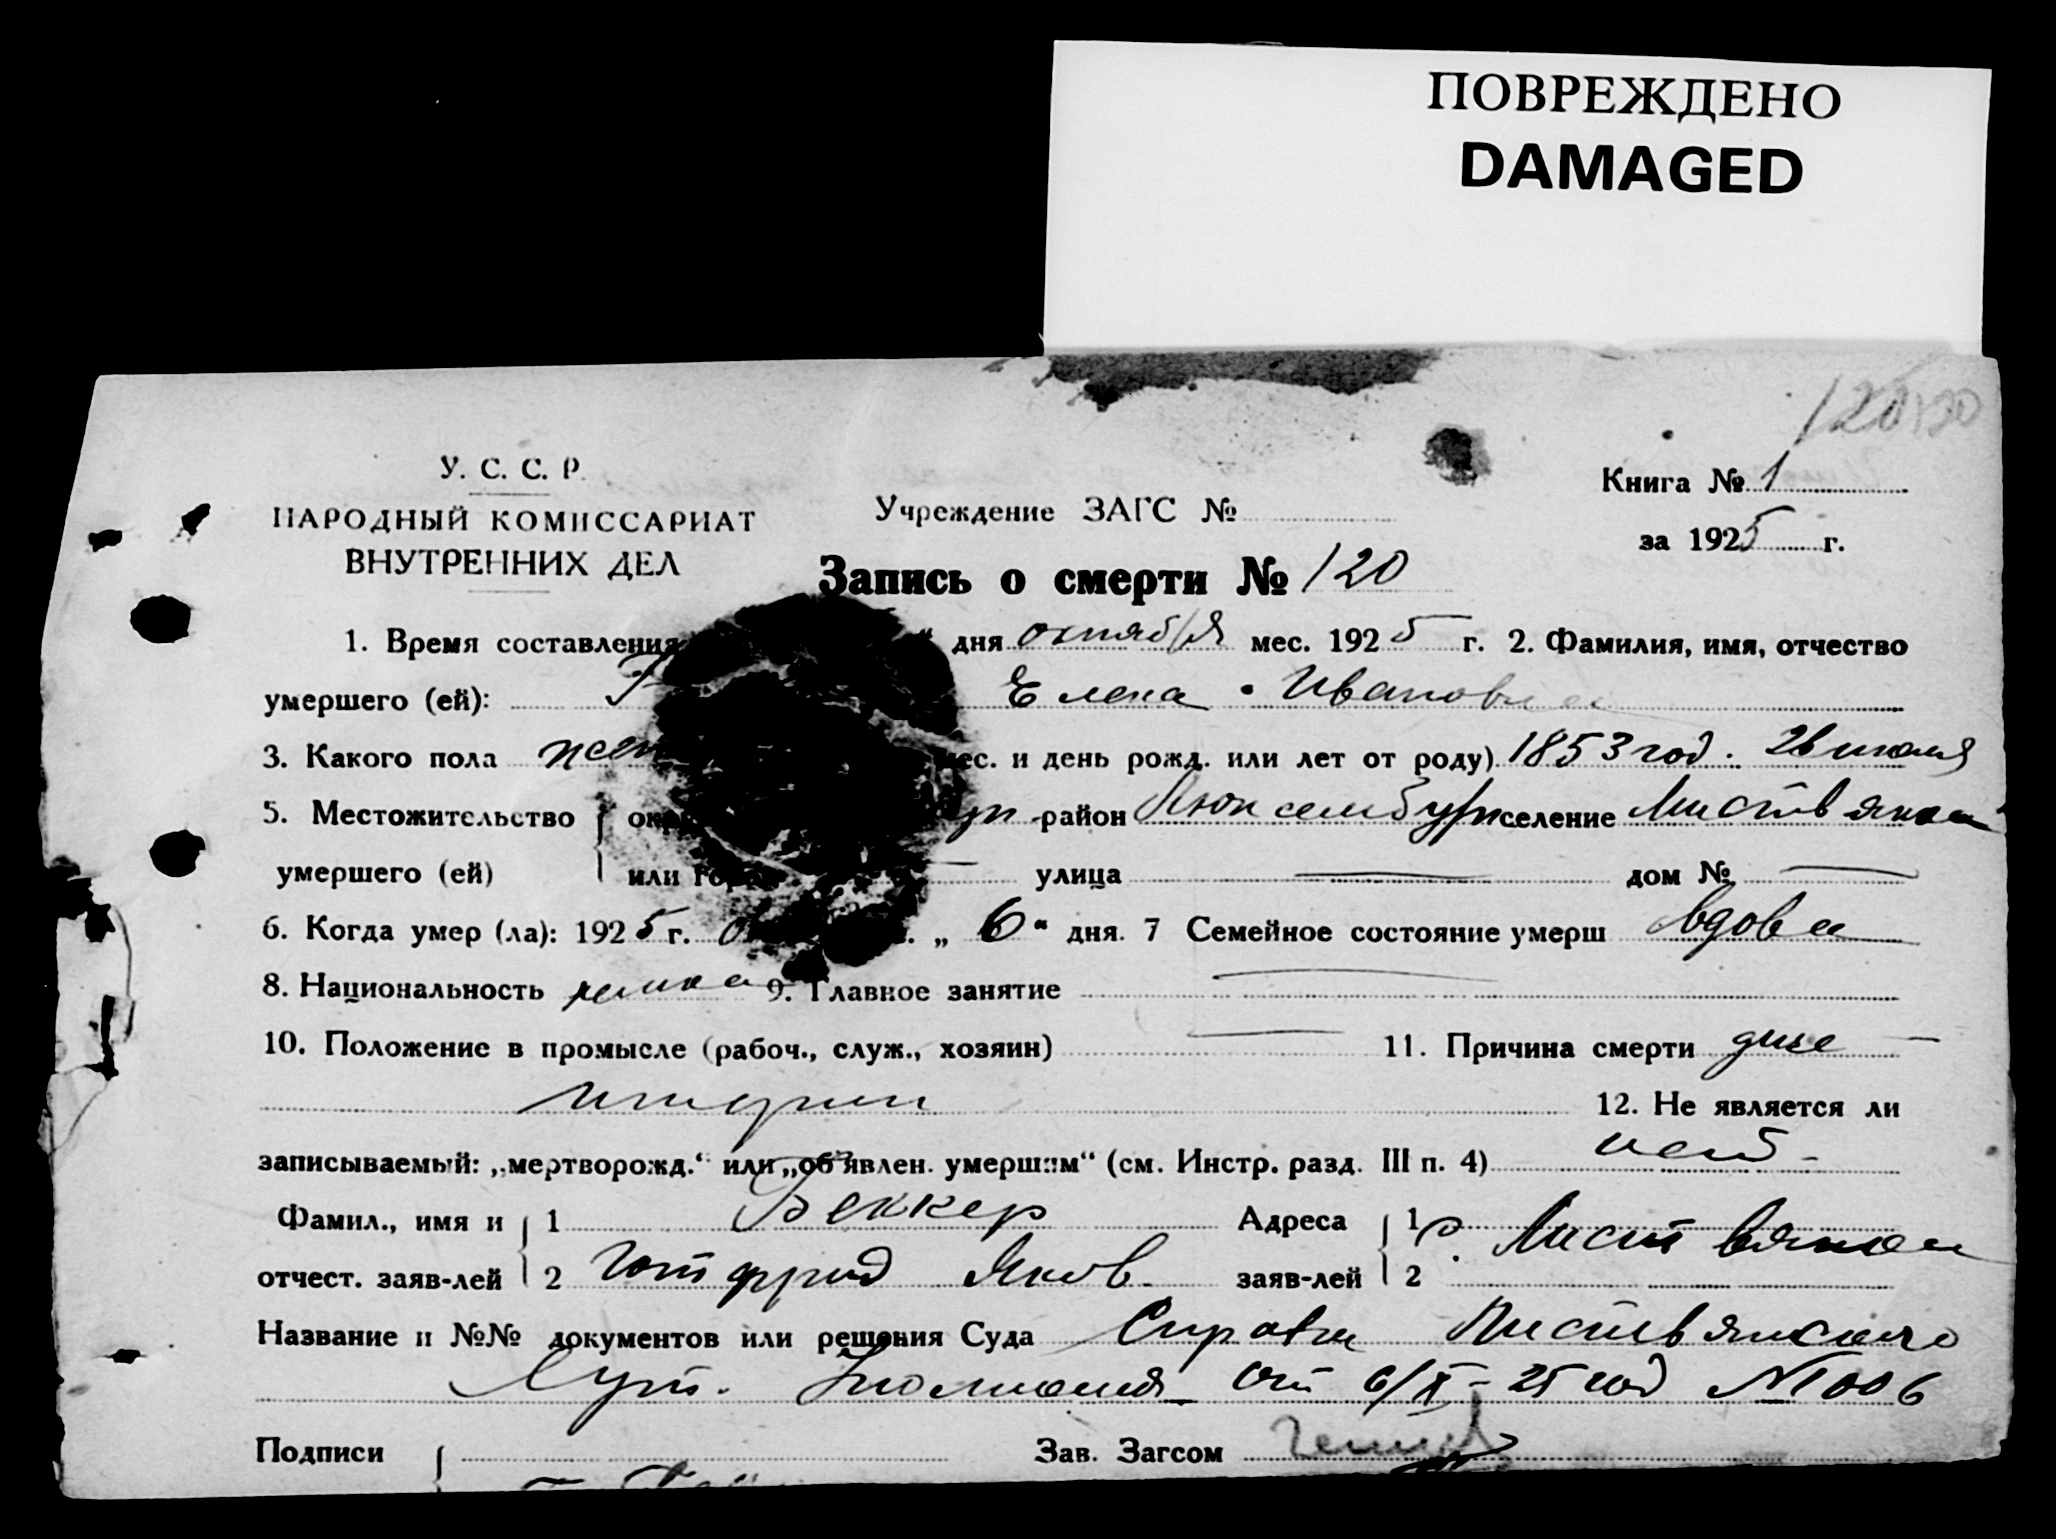 ПОВРЕЖДЕНО
DAMAGED
120
У. С. С. Р.
НАРОДНЫЙ КОМИССАРИАТ
ВНУТРЕННИХ ДЕЛ
Учреждение ЗАГС №
Книга № 1
за 1925 г.
Запись о смерти № 120
1. Время составления “ дня октября мес. 1925 г. 2. Фамилия, имя, отчество
умершего (ей): Елена Ивановна
3. Какого пола жен ес. и день рожд. или лет от роду) 1853 год. 26 июля
5. Местожительство район Люксембург селение Листвянка
умершего (ей) или гор улица — дом № —
6. Когда умер (ла): 1925 г. „ 6“ дня. 7 Семейное состояние умерш вдова
8. Национальность немка 9. Главное занятие —
10. Положение в промысле (рабоч., служ., хозяин) — 11. Причина смерти дизе-
нтерии 12. Не является ли
записываемый: „мертворожд.“ или „об‘явлен. умершим“ (см. Инстр. разд. III п. 4) нет -
Фамил., имя и 1 Беккер Адреса 1 с. Листвянка
отчест. заяв-лей 2 Готфрид Яков. заяв-лей 2
Название и №№ документов или решения Суда Справка Листвянского
от 6/X - 25 год N 1006
Подписи Зав. Загсом